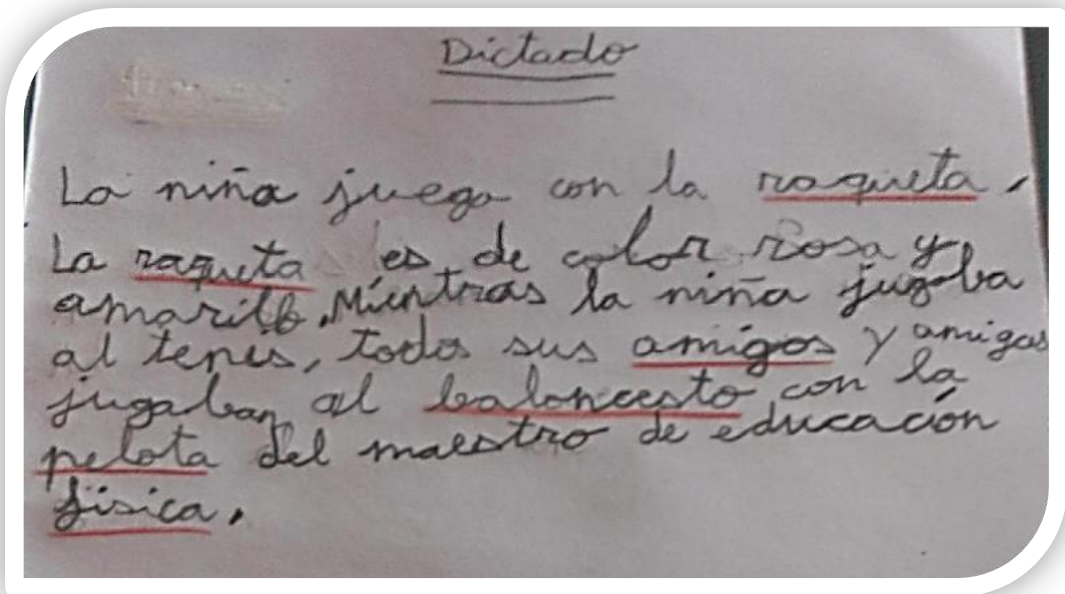 Dictado
La niña juega con la raqueta.
La raqueta es de color rosa y
amarillo. Mientras la niña jugaba
al tenis, todos sus amigos y amigas
jugaban al baloncesto con la
pelota del maestro de educación
física.